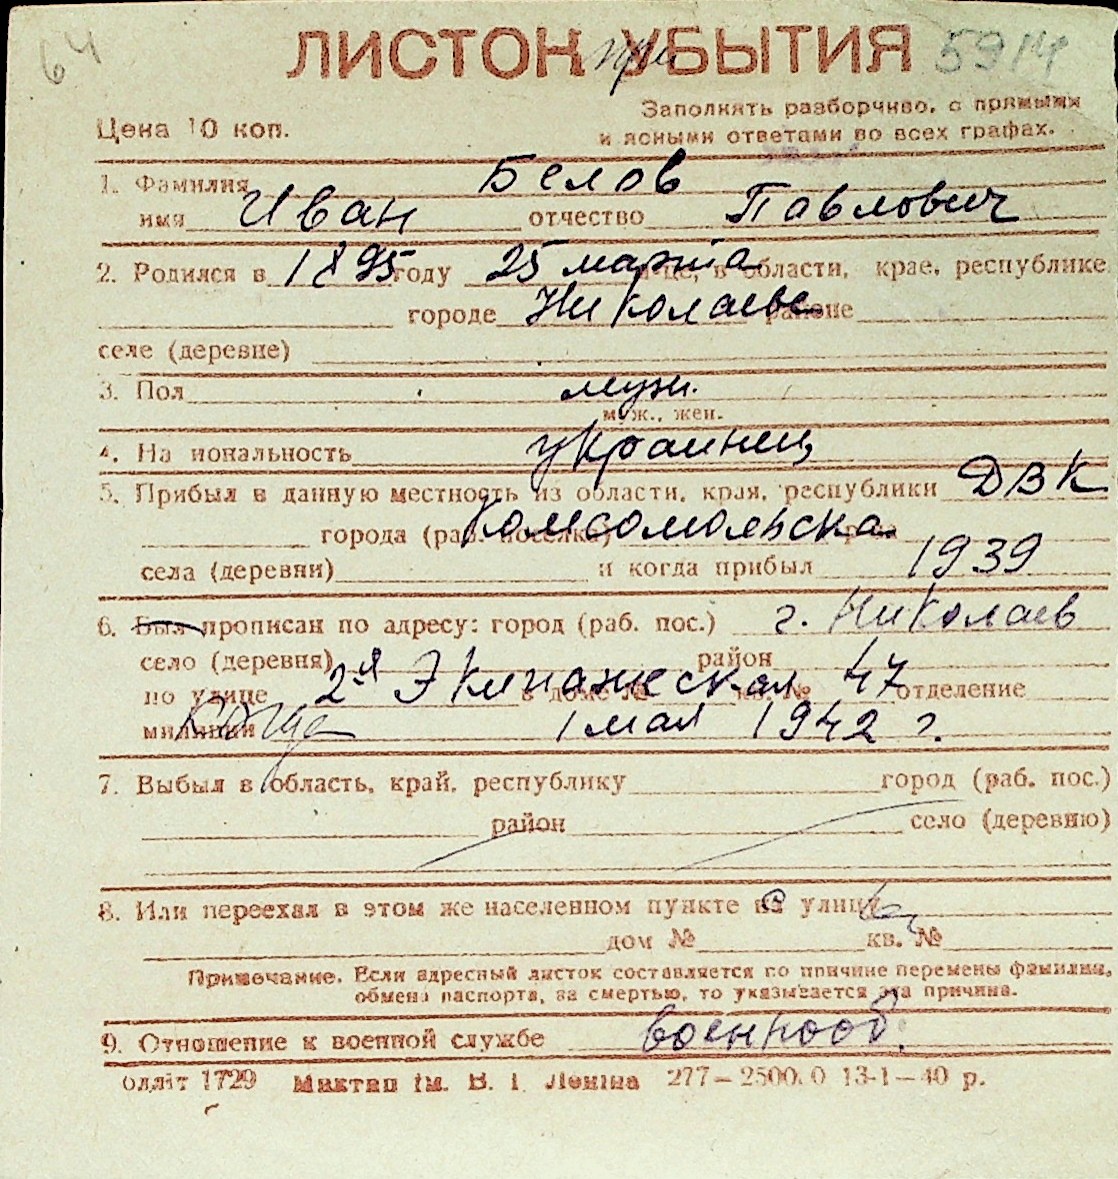 64 ЛИСТОК при УБЫТИЯ 5914
Заполнять разборчиво, с прямыми
Цена 10 коп. и ясными ответами во всех графах.
1. Фамилия Белов
имя Иван отчество Павлович
2. Родился в 1895 году 25 марта в области, крае, республике
городе Николаеве районе
селе (деревне)
3. Пол муж.
муж., жен.
4. На иональность украинец
5. Прибыл в данную местность из области, края, республики ДВК
города (раб. поселка) Комсомольска
села (деревни) и когда прибыл 1939
6. Был прописан по адресу: город (раб. пос.) г. Николаев
село (деревня) район
по улице 2-я Экипажеская в доме № кв. № 47 отделение
милиции когда 1 мая 1942 г.
7. Выбыл в область, край, республику город (раб. пос.)
район село (деревню)
8. Или переехал в этом же населенном пункте на улицу
дом № кв. №
Примечание. Если адресный листок составляется по причине перемены фамилии,
обмена паспорта, за смертью, то указывается эта причина.
9. Отношение к военной службе военнооб.
Олліт 1729 Миктип ім. В. І. Леніна 277—2500.0 13-1—40 р.